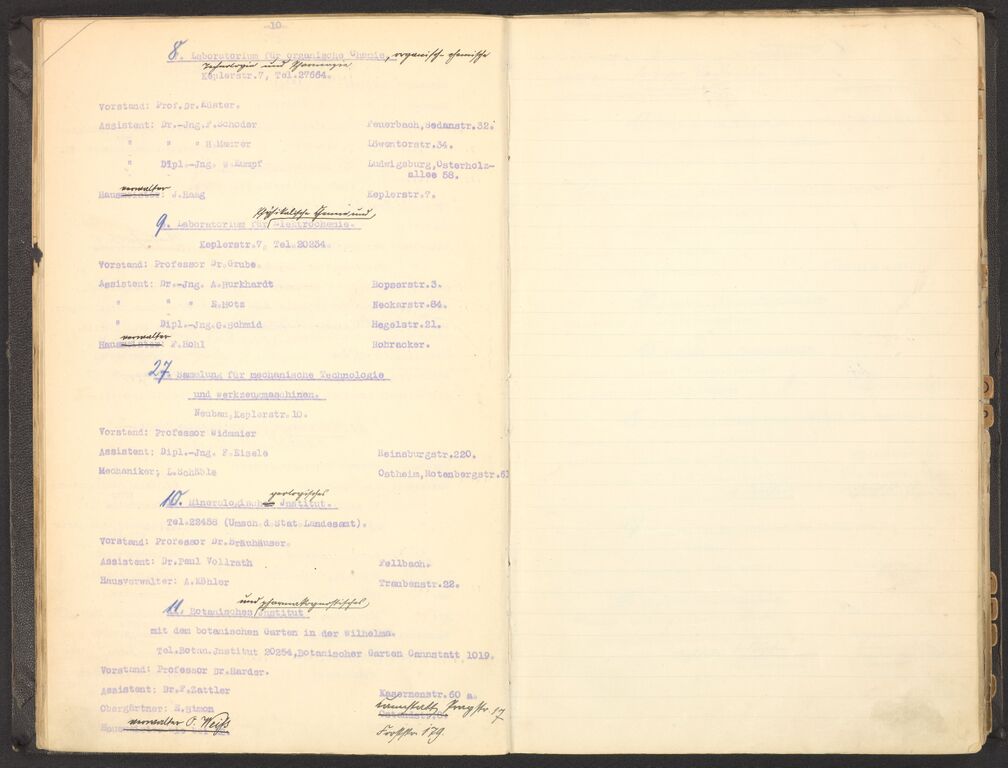 -10-
8. Laboratorium für organische Chemie, organisch-chemische
Technologie und Pharmazie
Keplerstr.7, Tel.27664.
Vorstand: Prof.Dr.Küster.
Assistent: Dr.-Jng.F.Schoder Feuerbach,Sedanstr.32.
" " " H.Maurer Löwentorstr.34.
" Dipl.-Jng. W.Rumpf Ludwigsburg,Osterholz-
allee 58.
verwalter
Hausmeister: J.Haag Keplerstr.7.
physikalische Chemie und
9. Laboratorium für Elektrochemie.
Keplerstr.7, Tel.20254.
Vorstand: Professor Dr.Grube.
Assistent: Dr.-Jng. A.Burkhardt Hopserstr.3.
" " " E.Motz Neckarstr.84.
" Dipl.-Jng.G.Schmid Hegelstr.21.
verwalter
Hausmeister: F.Hohl Rohracker.
27. Sammlung für mechanische Technologie
und Werkzeugmaschinen.
Neubau,Keplerstr.10.
Vorstand: Professor Widmaier
Assistent: Dipl.-Jng. F.Eisele Reinsburgstr.220.
Mechaniker; L.Schäble Ostheim,Rotenbergstr.61
geologisches
10. Mineralogisch Institut.
Tel.22458 (Umsch.d.Stat.Landesamt).
Vorstand: Professor Dr.Bräuhäuser.
Assistent: Dr.Paul Vollrath Fellbach.
Hausverwalter: A.Köhler Traubenstr.22.
und pharmakognostisches
11. Botanisches Institut
mit dem botanischen Garten in der Wilhelma.
Tel.Botan.Jnstitut 20254,Botanischer Garten Cannstatt 1019.
Vorstand: Professor Dr.Harder.
Assistent: Dr.F.Zattler Kasernenstr.60 a.
Obergärtner: E.Simon Cannstatt, Pragstr 17
verwalter O. Weiß
Haus Forststr 179.